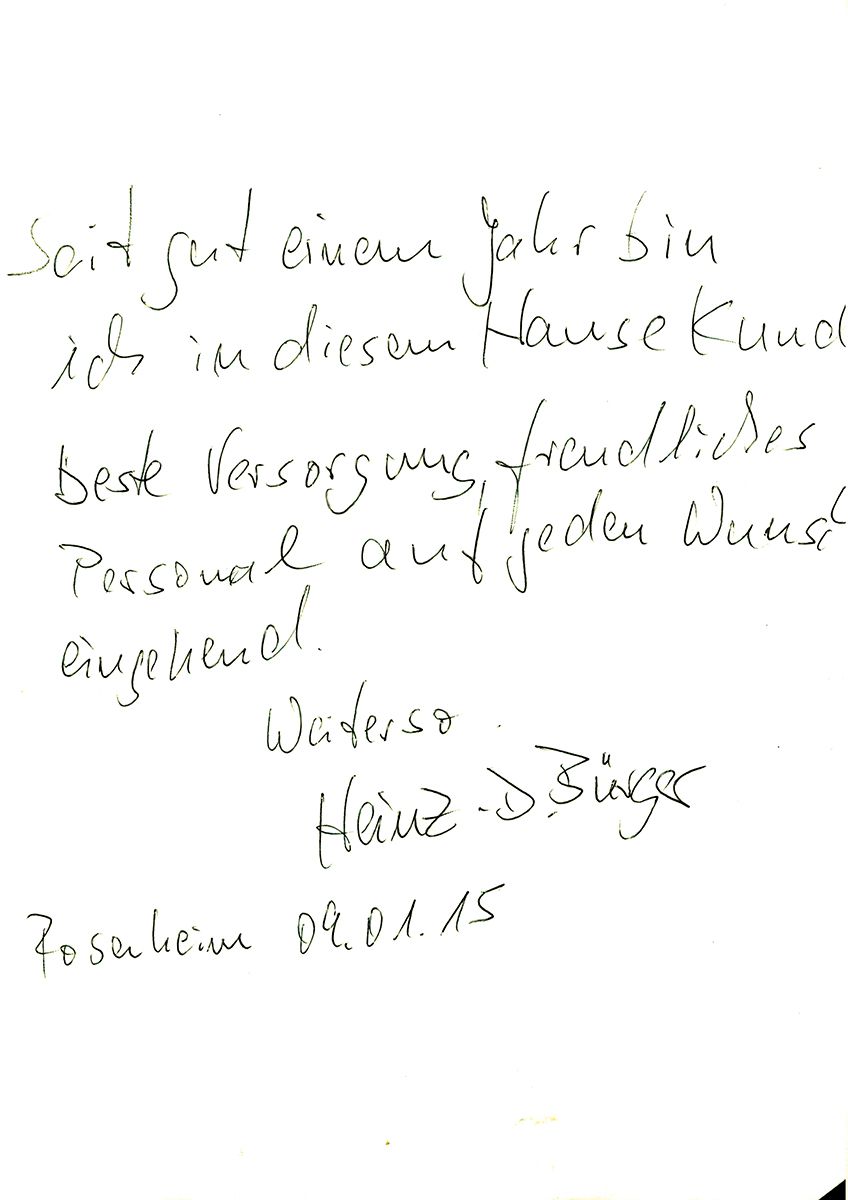 Seit gut einem Jahr bin
ich in diesem Hause Kund
beste Versorgung, freudliches
Personal auf jeden Wunsc
eingehend.
Weiterso.
Heinz-D. Bürger
Rosenheim 09.01.15